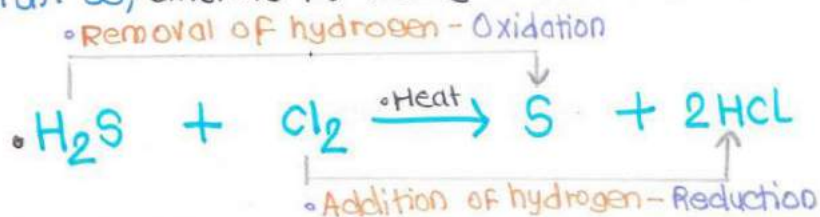 •Removal of hydrogen - Oxidation
•H₂S + Cl₂ •Heat → S + 2HCL
•Addition of hydrogen - Reduction